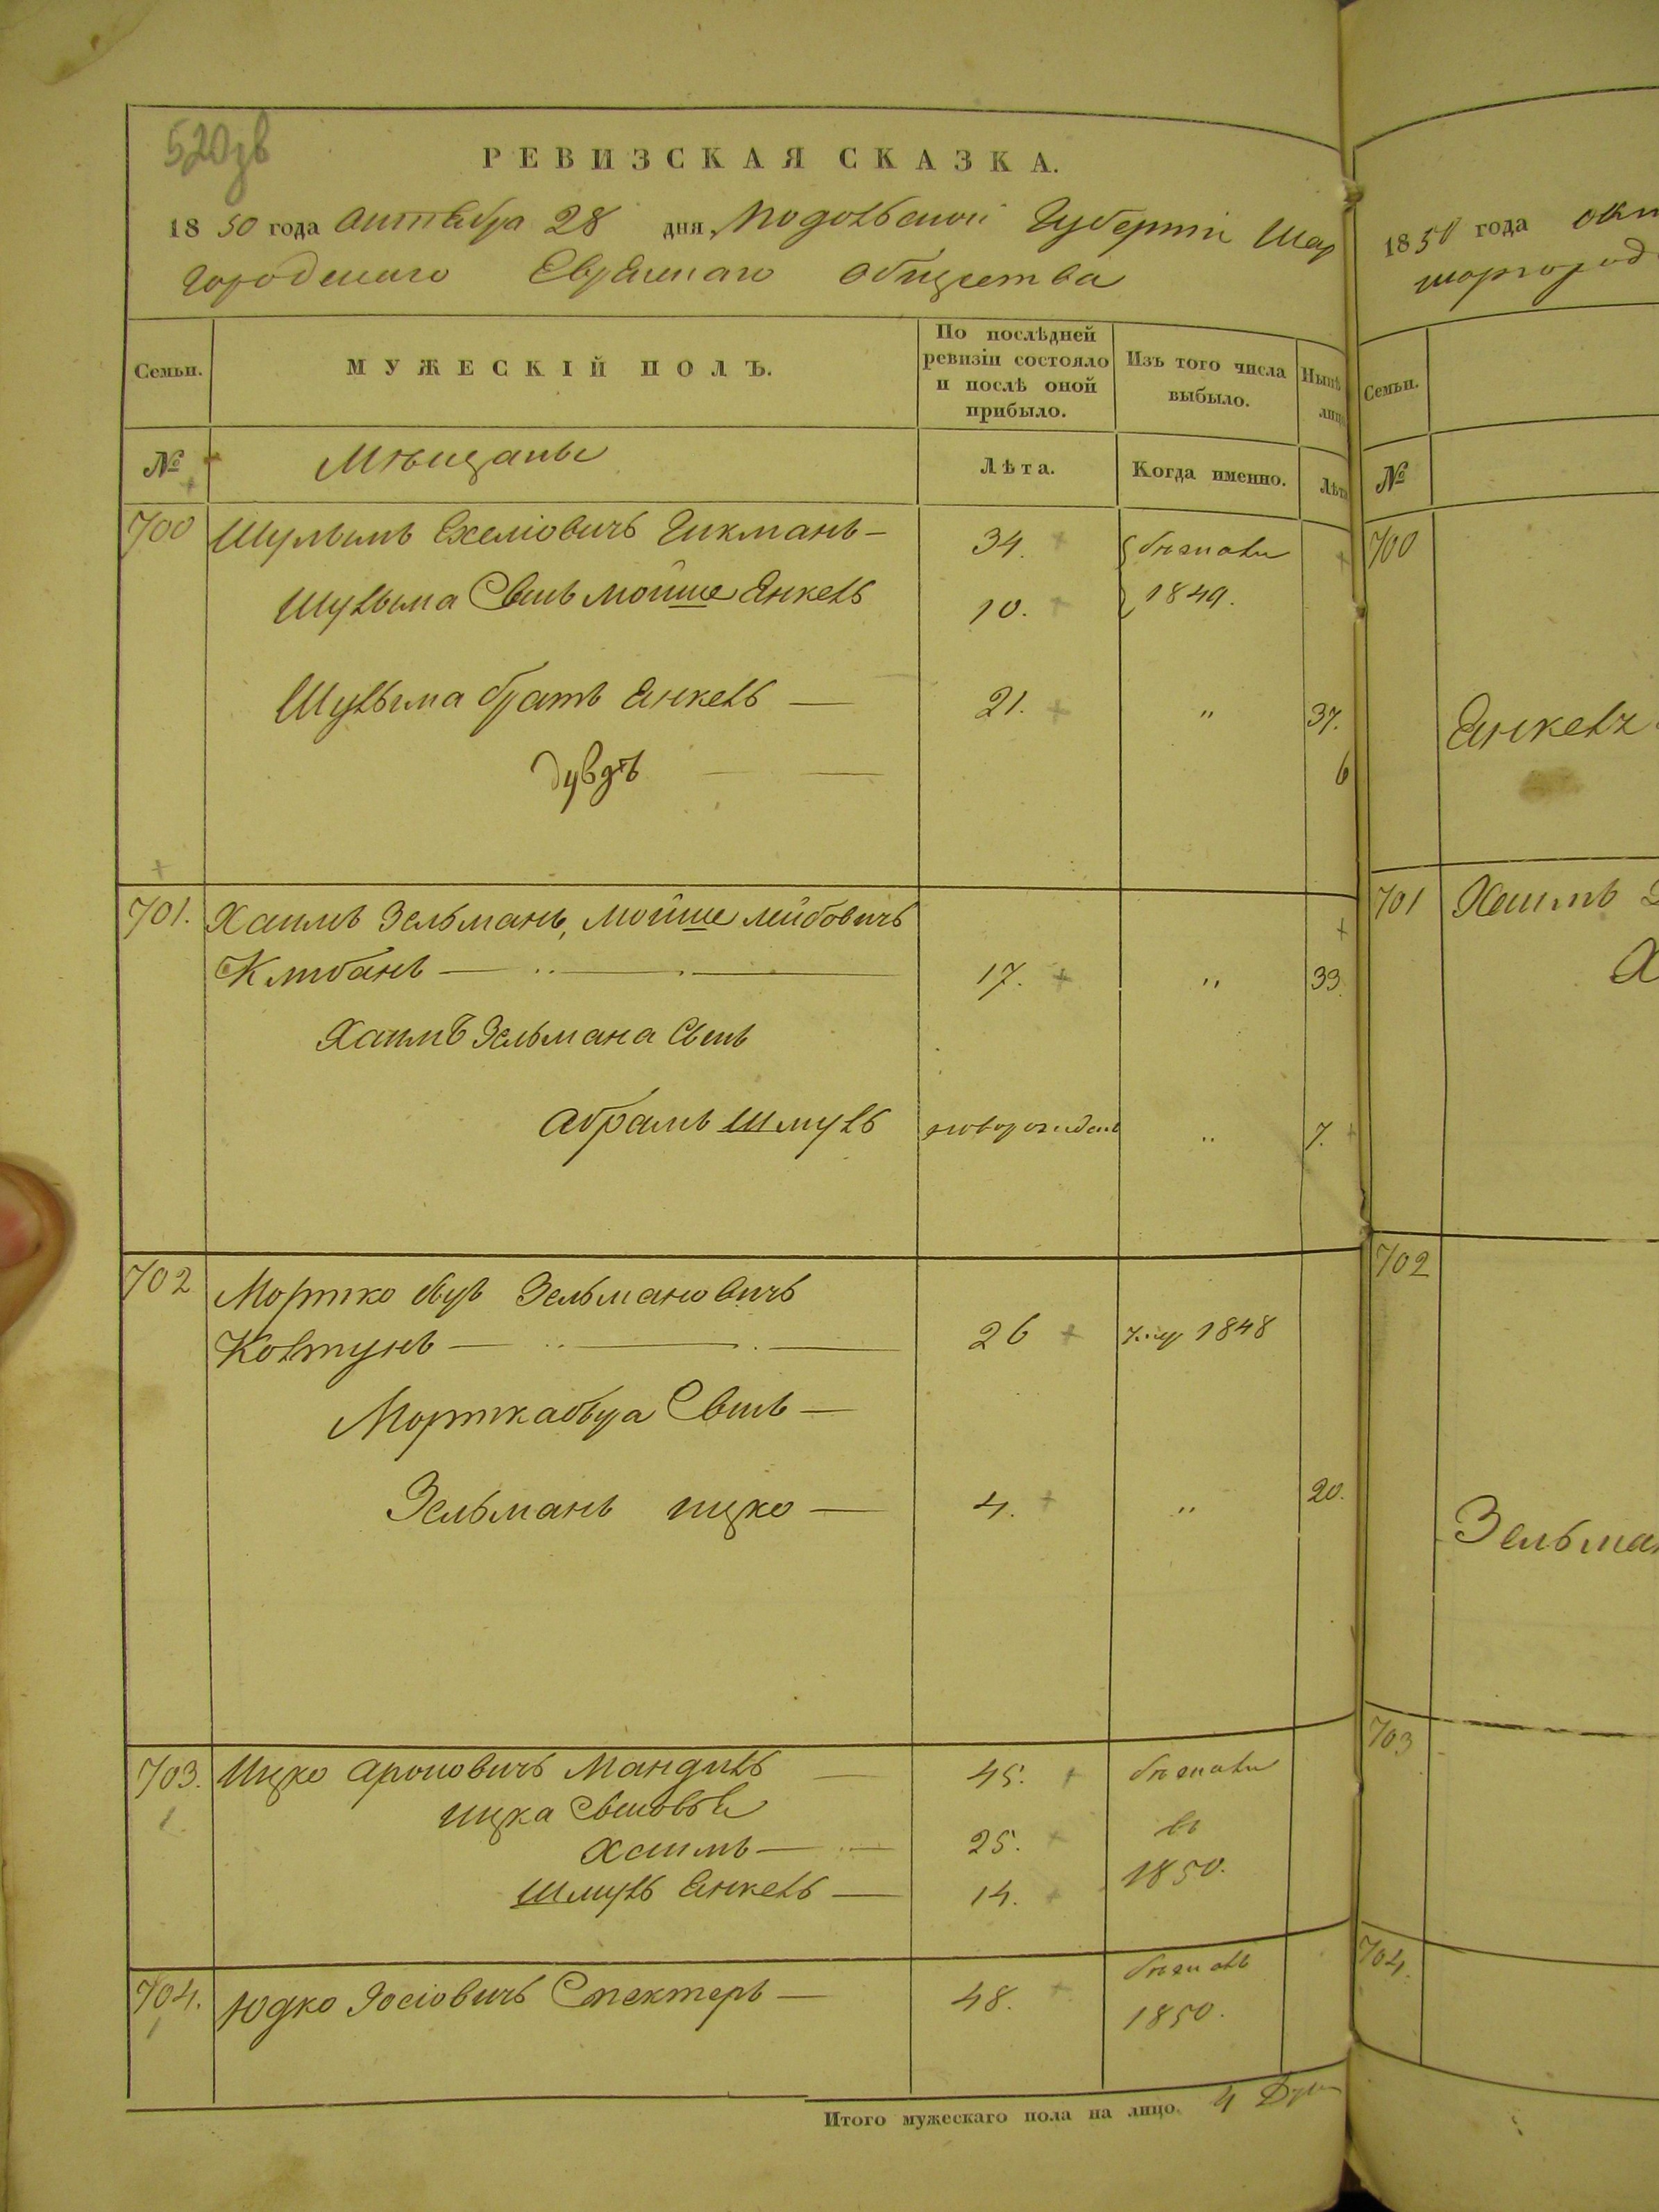 520зв
РЕВИЗСКАЯ СКАЗКА.
1850 года октября 28 дня Подольской Губернии Шар
городскаго Еврейскаго общества
Семьи.
МУЖЕСКІЙ ПОЛЪ.
По послѣдней ревизіи состояло и послѣ оной прибыло.
Изъ того числа выбыло.
Нынѣ
лиц
№
Мѣщане
Лѣта.
Когда именно.
Лѣта
700 Шулымъ Ехеліовичъ Гикманъ — 34. бѣжали
Шулыма Сынъ Мойше Янкель 10. 1849.
Шулыма братъ Янкель — 21. " 37.
Дувдъ — — 6
701. Хаимъ Зельманъ, Мойше Лейбовичъ
Клибанъ — 17. " 33.
Хаимъ Зельмана Сынъ
Абрамъ Шмуль новорожденъ " 7.
702 Мортко Абуъ Зельмановичъ
Ковтунъ — 26 умеръ 1848
Мортка Абуа Сынъ —
Зельманъ Ицко — 4. " 20.
703. Ицко Ароновичъ Мандиль — 45. бѣжали
Ицка Сыновья въ
Хаимъ — 25.
Шмуль Янкель — 14. 1850.
704. Юдко Іосіовичъ Спекторъ — 48. бѣжалъ
1850.
Итого мужескаго пола на лицо 4 Души
1850 года окт
шаргород
Семьи.
№
700
Янкеля
701 Хаимъ
702
Зельма
703
704.